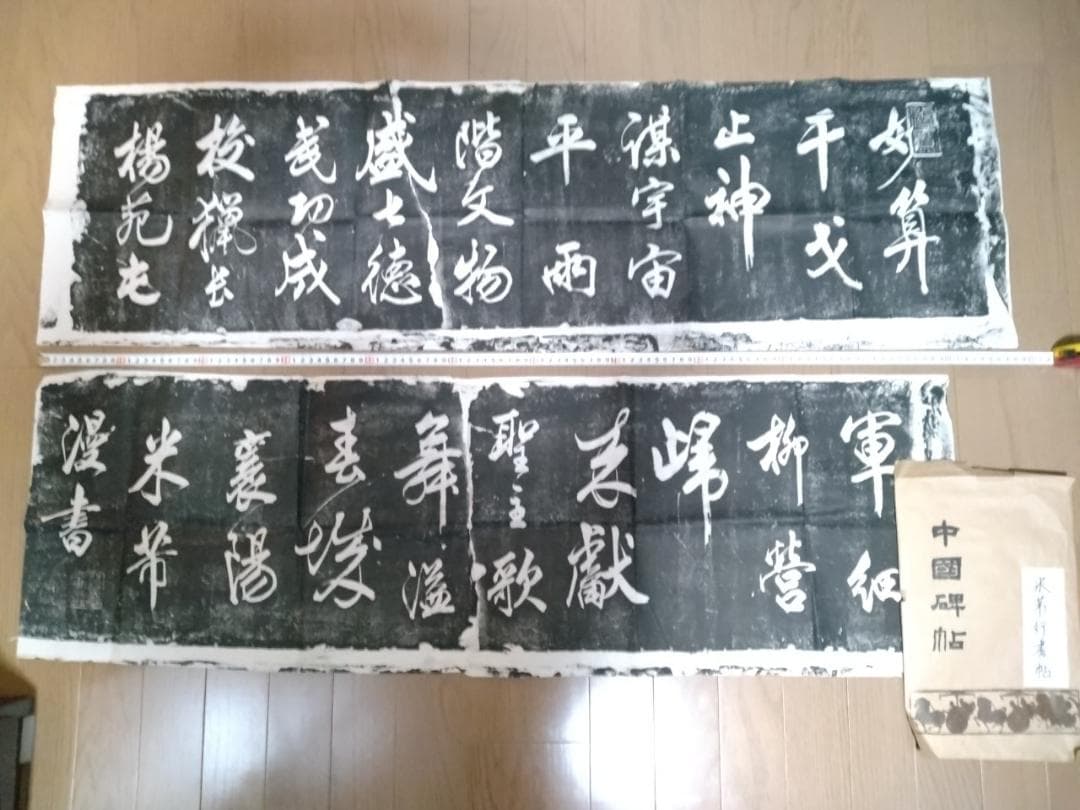 妙算
干戈
止神
謀宇宙
平兩
階文物
盛七德
武功成
校獵長
楊苑屯
軍細
柳營
歸
来獻
聖主歌
舞溢
春城
襄陽
米芾
漫書
中國碑帖
米芾行書帖